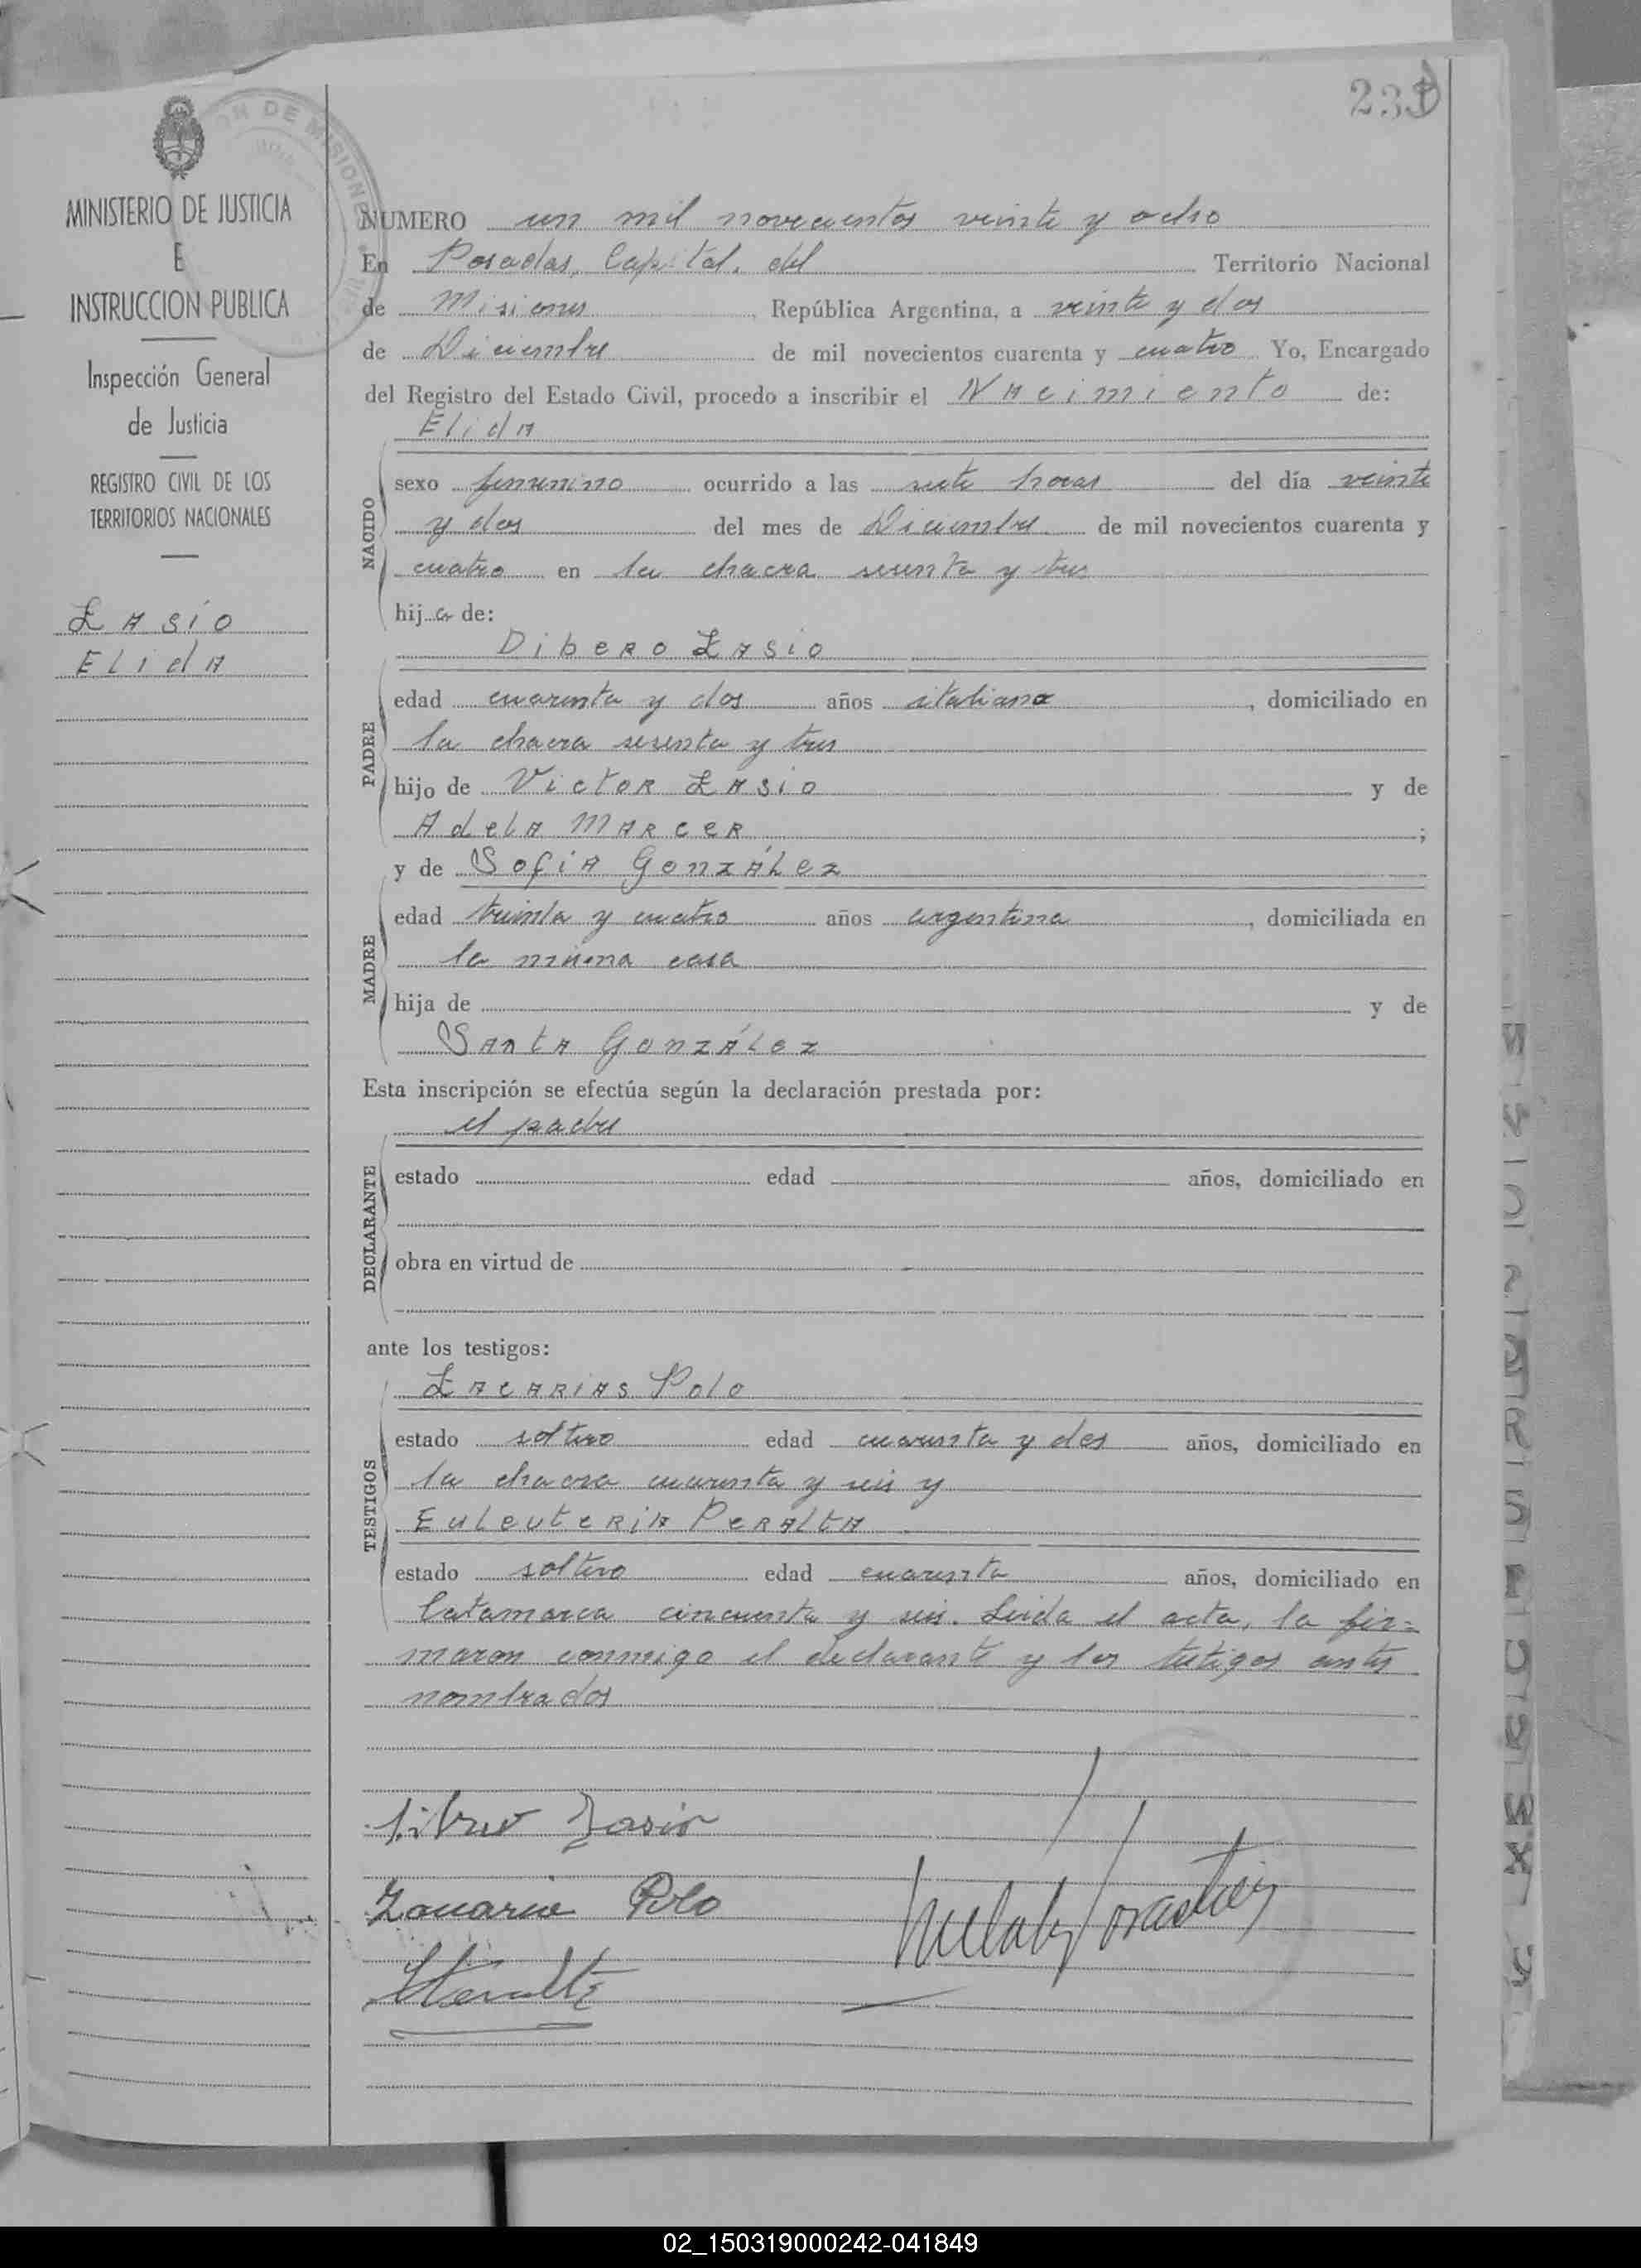 233
MINISTERIO DE JUSTICIA
E
INSTRUCCION PUBLICA
Inspección General
de Justicia
REGISTRO CIVIL DE LOS
TERRITORIOS NACIONALES
Zasio
Elida
NUMERO un mil novecientos veinte y ocho
En Posadas, Capital del Territorio Nacional
de Misiones, República Argentina, a veinte y dos
de Diciembre de mil novecientos cuarenta y cuatro Yo, Encargado
del Registro del Estado Civil, procedo a inscribir el Nacimiento de:
Elida
NACIDO
sexo femenino ocurrido a las siete horas del día veinte
y dos del mes de Diciembre de mil novecientos cuarenta y
cuatro en la chacra sesenta y tres
hija de:
Dibero Zasio
PADRE
edad cuarenta y dos años italiano, domiciliado en
la chacra sesenta y tres
hijo de Victor Zasio y de
Adela Marcer;
y de Sofia González
MADRE
edad treinta y cuatro años argentina, domiciliada en
la misma casa
hija de y de
Santa González
Esta inscripción se efectúa según la declaración prestada por:
el padre
DECLARANTE
estado edad años, domiciliado en
obra en virtud de
ante los testigos:
Zacarias Polo
TESTIGOS
estado soltero edad cuarenta y dos años, domiciliado en
la chacra cuarenta y seis y
Euleuteria Peralta
estado soltero edad cuarenta años, domiciliado en
Catamarca cincuenta y seis. Leida el acta, la fir=
maron conmigo el declarante y los testigos antes
nombrados
Zasio
Polo
02_150319000242-041849